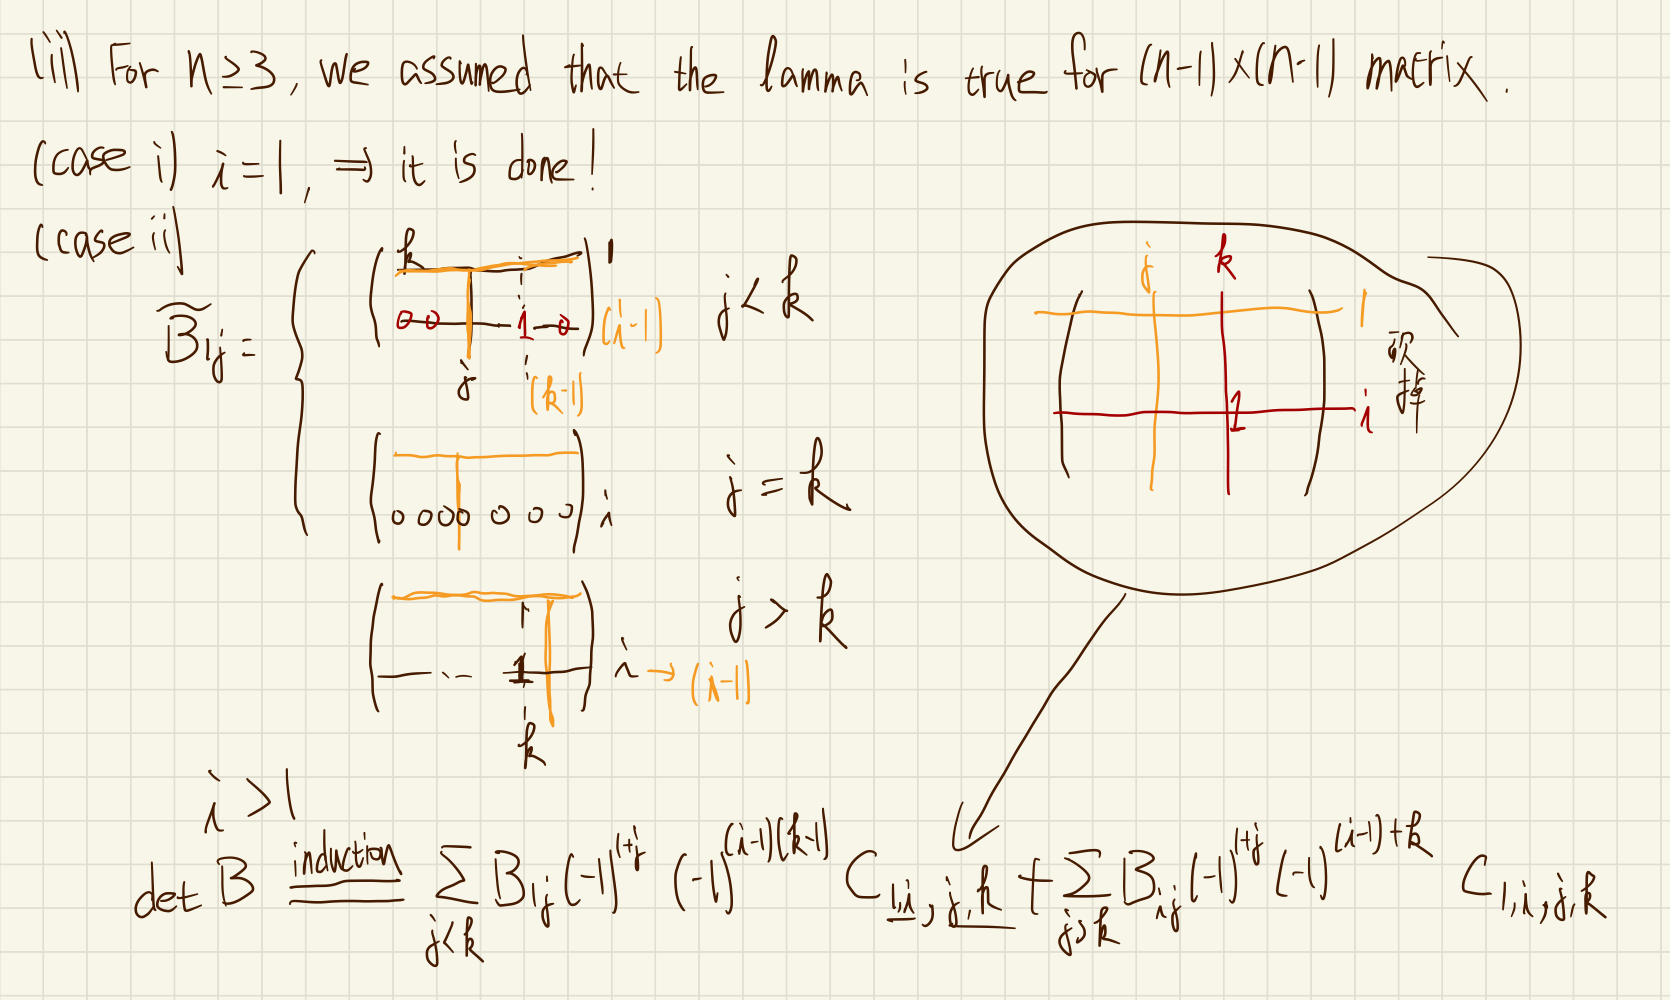 (ii) For n≥3, we assumed that the lamma is true for (n-1)×(n-1) matrix.
(case i) i=1, ⇒ it is done!
(case ii)
B̃1j =
k 1
0 0 1 0 (i-1) j<k
j (k-1)
0 0 0 0 0 0 0 i j=k
1 i → (i-1) j>k
k
j k
1
1 i
掉
i>1
det B induction = ∑j<k B1j (-1)^1+j (-1)^(i-1)(k-1) C1,i,j,k + ∑j>k Bij (-1)^1+j (-1)^(i-1)+k C1,i,j,k